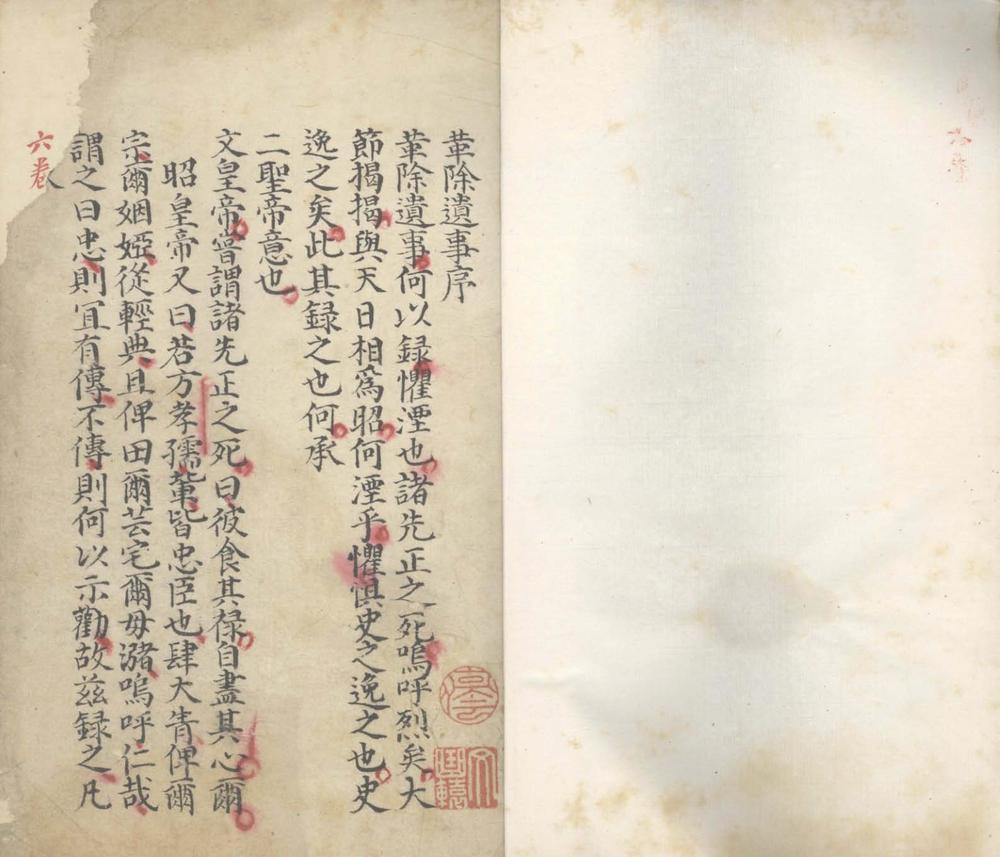 革除遺事序
革除遺事何以録懼湮也諸先正之死嗚呼烈矣大
節揭揭與天日相爲昭何湮乎懼惧史之逸之也史
逸之矣此其録之也何承
二聖帝意也
文皇帝嘗謂諸先正之死曰彼食其禄自盡其心爾
昭皇帝又曰若方孝孺輩皆忠臣也肆大眚俾爾
宗爾姻婭從輕典且俾田爾芸宅爾毋瀦嗚呼仁哉
謂之曰忠則冝有傳不傳則何以示勸故兹録之凡
六卷